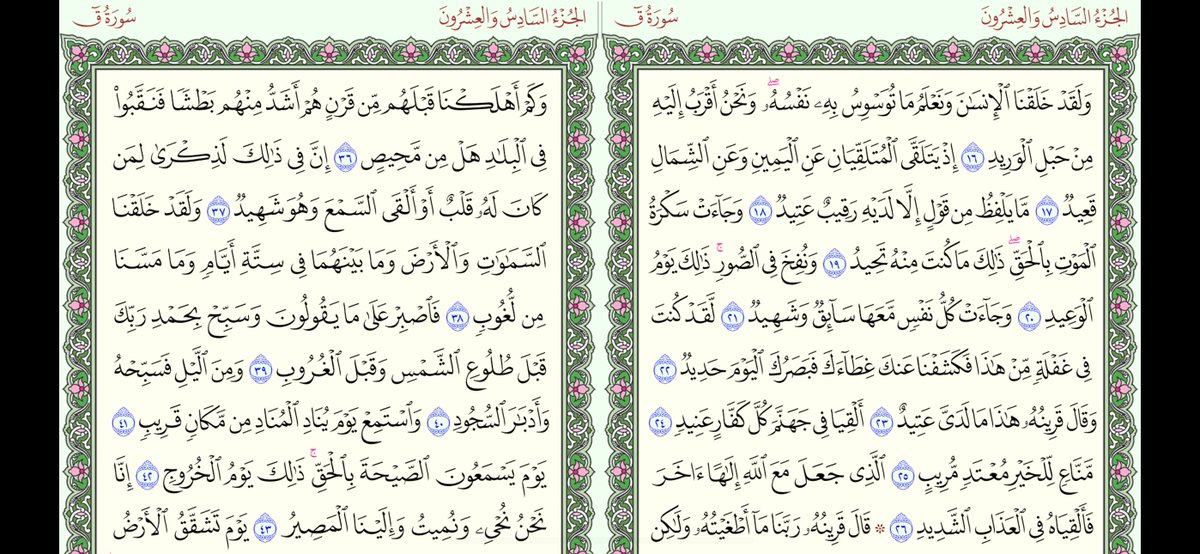 سُورَةُ قٓ
الجُزْءُ السَّادِسُ وَالعِشْرُونَ
وَلَقَدۡ خَلَقۡنَا ٱلۡإِنسَٰنَ وَنَعۡلَمُ مَا تُوَسۡوِسُ بِهِۦ نَفۡسُهُۥۖ وَنَحۡنُ أَقۡرَبُ إِلَيۡهِ
مِنۡ حَبۡلِ ٱلۡوَرِيدِ ١٦ إِذۡ يَتَلَقَّى ٱلۡمُتَلَقِّيَانِ عَنِ ٱلۡيَمِينِ وَعَنِ ٱلشِّمَالِ
قَعِيدٞ ١٧ مَّا يَلۡفِظُ مِن قَوۡلٍ إِلَّا لَدَيۡهِ رَقِيبٌ عَتِيدٞ ١٨ وَجَآءَتۡ سَكۡرَةُ
ٱلۡمَوۡتِ بِٱلۡحَقِّۖ ذَٰلِكَ مَا كُنتَ مِنۡهُ تَحِيدُ ١٩ وَنُفِخَ فِي ٱلصُّورِۚ ذَٰلِكَ يَوۡمُ
ٱلۡوَعِيدِ ٢٠ وَجَآءَتۡ كُلُّ نَفۡسٖ مَّعَهَا سَآئِقٞ وَشَهِيدٞ ٢١ لَّقَدۡ كُنتَ
فِي غَفۡلَةٖ مِّنۡ هَٰذَا فَكَشَفۡنَا عَنكَ غِطَآءَكَ فَبَصَرُكَ ٱلۡيَوۡمَ حَدِيدٞ ٢٢
وَقَالَ قَرِينُهُۥ هَٰذَا مَا لَدَيَّ عَتِيدٌ ٢٣ أَلۡقِيَا فِي جَهَنَّمَ كُلَّ كَفَّارٍ عَنِيدٖ ٢٤
مَّنَّاعٖ لِّلۡخَيۡرِ مُعۡتَدٖ مُّرِيبٍ ٢٥ ٱلَّذِي جَعَلَ مَعَ ٱللَّهِ إِلَٰهًا ءَاخَرَ
فَأَلۡقِيَاهُ فِي ٱلۡعَذَابِ ٱلشَّدِيدِ ٢٦ ۞ قَالَ قَرِينُهُۥ رَبَّنَا مَآ أَطۡغَيۡتُهُۥ وَلَٰكِن
سُورَةُ قٓ
الجُزْءُ السَّادِسُ وَالعِشْرُونَ
وَكَمۡ أَهۡلَكۡنَا قَبۡلَهُم مِّن قَرۡنٍ هُمۡ أَشَدُّ مِنۡهُم بَطۡشٗا فَنَقَّبُواْ
فِي ٱلۡبِلَٰدِ هَلۡ مِن مَّحِيصٍ ٣٦ إِنَّ فِي ذَٰلِكَ لَذِكۡرَىٰ لِمَن
كَانَ لَهُۥ قَلۡبٌ أَوۡ أَلۡقَى ٱلسَّمۡعَ وَهُوَ شَهِيدٞ ٣٧ وَلَقَدۡ خَلَقۡنَا
ٱلسَّمَٰوَٰتِ وَٱلۡأَرۡضَ وَمَا بَيۡنَهُمَا فِي سِتَّةِ أَيَّامٖ وَمَا مَسَّنَا
مِن لُّغُوبٖ ٣٨ فَٱصۡبِرۡ عَلَىٰ مَا يَقُولُونَ وَسَبِّحۡ بِحَمۡدِ رَبِّكَ
قَبۡلَ طُلُوعِ ٱلشَّمۡسِ وَقَبۡلَ ٱلۡغُرُوبِ ٣٩ وَمِنَ ٱلَّيۡلِ فَسَبِّحۡهُ
وَأَدۡبَٰرَ ٱلسُّجُودِ ٤٠ وَٱسۡتَمِعۡ يَوۡمَ يُنَادِ ٱلۡمُنَادِ مِن مَّكَانٖ قَرِيبٖ ٤١
يَوۡمَ يَسۡمَعُونَ ٱلصَّيۡحَةَ بِٱلۡحَقِّۚ ذَٰلِكَ يَوۡمُ ٱلۡخُرُوجِ ٤٢ إِنَّا
نَحۡنُ نُحۡيِۦ وَنُمِيتُ وَإِلَيۡنَا ٱلۡمَصِيرُ ٤٣ يَوۡمَ تَشَقَّقُ ٱلۡأَرۡضُ